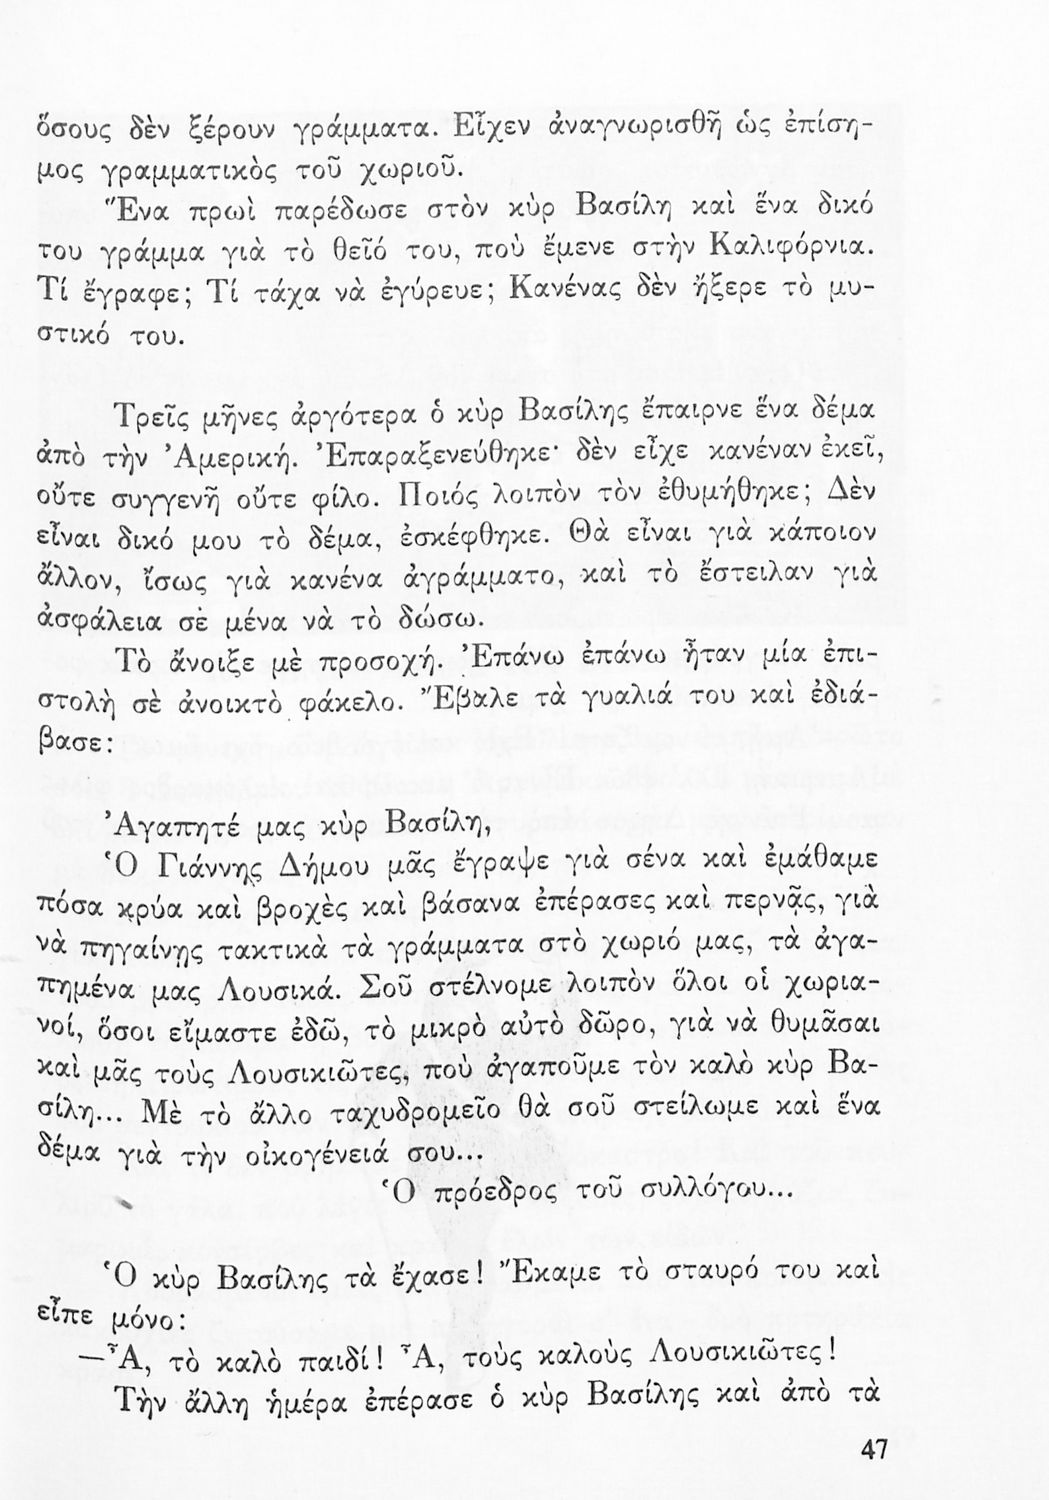 ὅσους δὲν ξέρουν γράμματα. Εἶχεν ἀναγνωρισθῆ ὡς ἐπίση-
μος γραμματικὸς τοῦ χωριοῦ.
Ἕνα πρωὶ παρέδωσε στὸν κὺρ Βασίλη καὶ ἕνα δικό
του γράμμα γιὰ τὸ θεῖό του, ποὺ ἔμενε στὴν Καλιφόρνια.
Τί ἔγραφε; Τί τάχα νὰ ἐγύρευε; Κανένας δὲν ἤξερε τὸ μυ-
στικό του.
Τρεῖς μῆνες ἀργότερα ὁ κὺρ Βασίλης ἔπαιρνε ἕνα δέμα
ἀπὸ τὴν Ἀμερική. Ἐπαραξενεύθηκε· δὲν εἶχε κανέναν ἐκεῖ,
οὔτε συγγενῆ οὔτε φίλο. Ποιός λοιπὸν τὸν ἐθυμήθηκε; Δὲν
εἶναι δικό μου τὸ δέμα, ἐσκέφθηκε. Θὰ εἶναι γιὰ κάποιον
ἄλλον, ἴσως γιὰ κανένα ἀγράμματο, καὶ τὸ ἔστειλαν γιὰ
ἀσφάλεια σὲ μένα νὰ τὸ δώσω.
Τὸ ἄνοιξε μὲ προσοχή. Ἐπάνω ἐπάνω ἦταν μία ἐπι-
στολὴ σὲ ἀνοικτὸ φάκελο. Ἔβαλε τὰ γυαλιά του καὶ ἐδιά-
βασε:
Ἀγαπητέ μας κὺρ Βασίλη,
Ὁ Γιάννης Δήμου μᾶς ἔγραψε γιὰ σένα καὶ ἐμάθαμε
πόσα κρύα καὶ βροχὲς καὶ βάσανα ἐπέρασες καὶ περνᾷς, γιὰ
νὰ πηγαίνῃς τακτικὰ τὰ γράμματα στὸ χωριό μας, τὰ ἀγα-
πημένα μας Λουσικά. Σοῦ στέλνομε λοιπὸν ὅλοι οἱ χωρια-
νοί, ὅσοι εἴμαστε ἐδῶ, τὸ μικρὸ αὐτὸ δῶρο, γιὰ νὰ θυμᾶσαι
καὶ μᾶς τοὺς Λουσικιῶτες, ποὺ ἀγαποῦμε τὸν καλὸ κὺρ Βα-
σίλη... Μὲ τὸ ἄλλο ταχυδρομεῖο θὰ σοῦ στείλωμε καὶ ἕνα
δέμα γιὰ τὴν οἰκογένειά σου...
Ὁ πρόεδρος τοῦ συλλόγου...
Ὁ κὺρ Βασίλης τὰ ἔχασε! Ἔκαμε τὸ σταυρό του καὶ
εἶπε μόνο:
—Ἆ, τὸ καλὸ παιδί! Ἆ, τοὺς καλοὺς Λουσικιῶτες!
Τὴν ἄλλη ἡμέρα ἐπέρασε ὁ κὺρ Βασίλης καὶ ἀπὸ τὰ
47